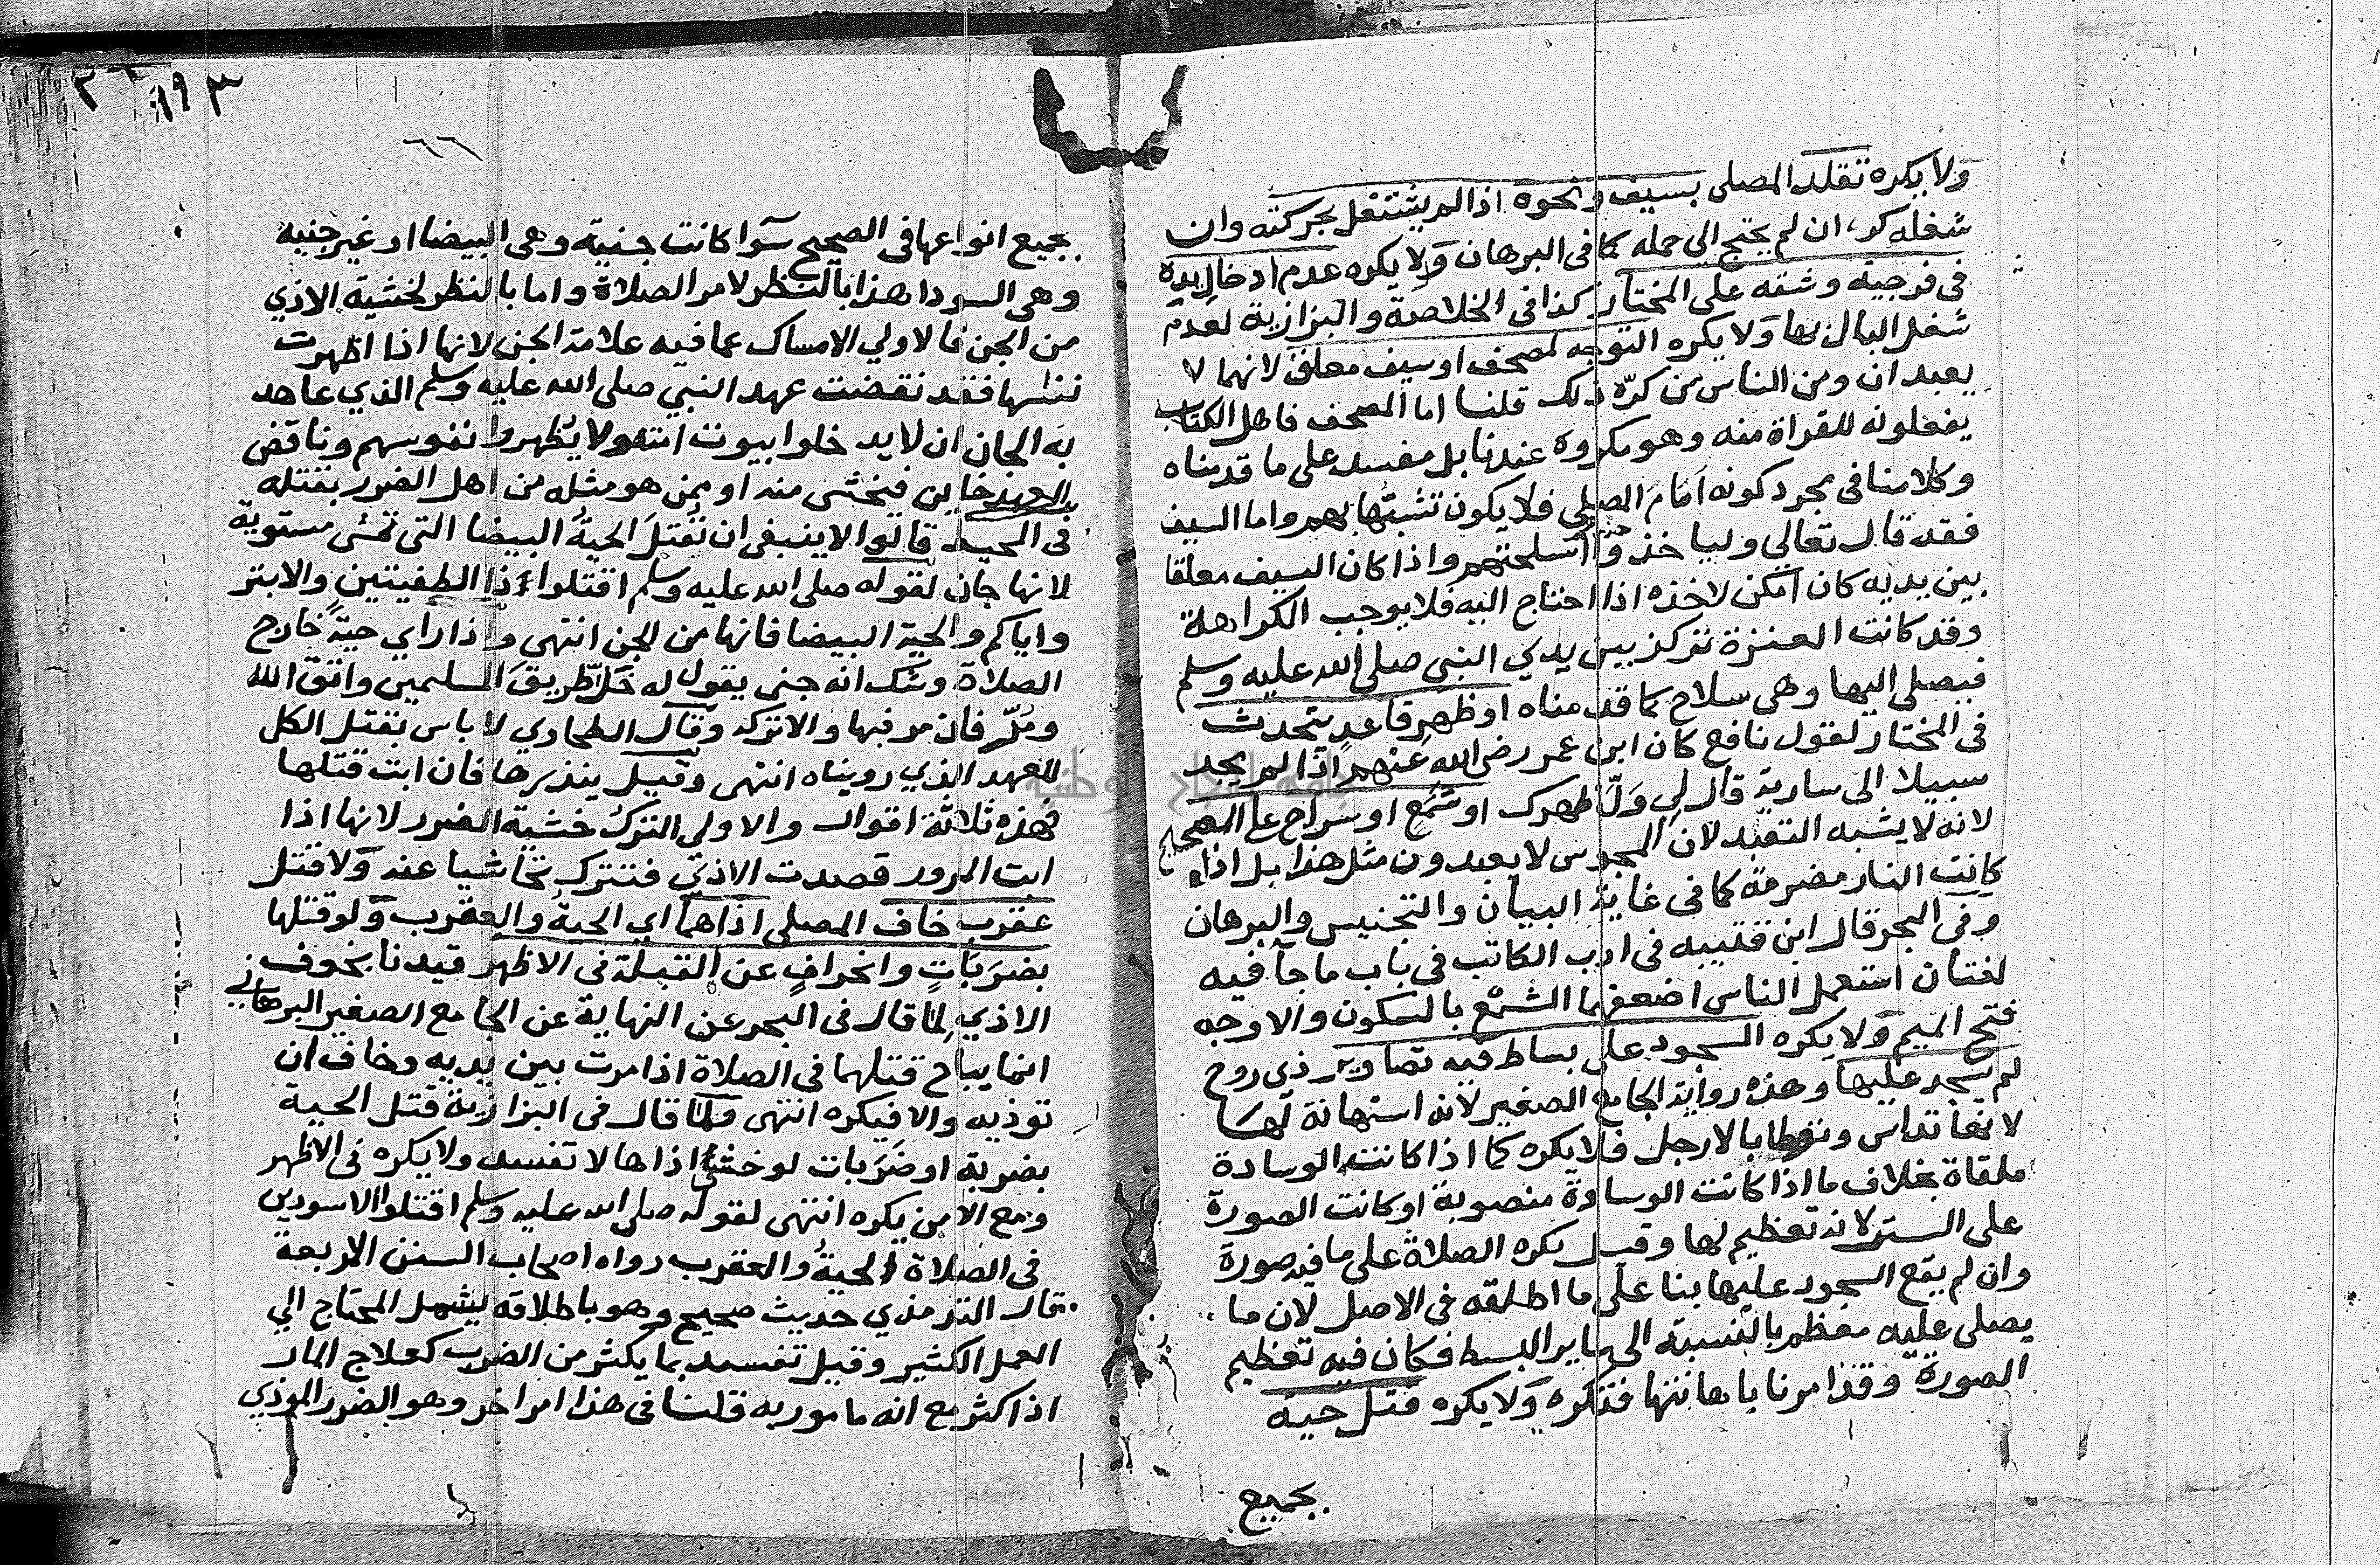 ولا يكره تقلد المصلي بسيف ونحوه اذا لم يشتغل بحركته وان
شغله كره ان لم يحتج الي حمله كما في البرهان ولا يكره عدم ادخال يديه
في فرجيه وشقه على المختار كذا في الخلاصة والبزازية لعدم
شغل البال بها ولا يكره التوجه لمصحف او سيف معلق لانهما لا
يعبدان ومن الناس من كره ذلك قلنا اما المصحف فاهل الكتاب
يفعلونه للقراة منه وهو مكروه عندنا بل مفسد على ما قدمناه
وكلامنا في مجرد كونه امام المصلي فلا يكون تشبها بهم واما السيف
فقد قال تعالي ولياخذوا اسلحتهم واذا كان السيف معلقا
بين يديه كان امكن لاخذه اذا احتاج اليه فلا يوجب الكراهة
وقد كانت العنزة تركز بين يدي النبي صلى الله عليه وسلم
فيصلي اليها وهي سلاح كما قدمناه او ظهر قاعد يتحدث
في المختار لقول نافع كان ابن عمر رضى الله عنهم اذا لم يجد
سبيلا الى سارية قال لي ول ظهرك او شمع او سراج على الصحيح
لانه لا يشبه التعبد لان المجوس لا يعبدون مثل هذا بل اذا
كانت النار مضرمة كما في غاية البيان والتجنيس والبرهان
وفي البحر قال ابن قتيبه في ادب الكاتب في باب ما جآ فيه
لغتان استعمل الناس اضعفهما الشمع بالسكون والاوجه
فتح الميم ولا يكره السجود على بساط فيه تصاوير ذي روح
لم يسجد عليها وهذه رواية الجامع الصغير لانه استهانة لها
لانها تداس وتوطا بالارجل فلا يكره كما اذا كانت الوسادة
ملقاة بخلاف ما اذا كانت الوسادة منصوبة او كانت الصورة
على الستر لانه تعظيم لها وقيل يكره الصلاة على ما فيه صورة
وان لم يقع السجود عليها بنا على ما اطلقه في الاصل لان ما
يصلى عليه معظم بالنسبة الى ساير البسط فكان فيه تعظيم
الصورة وقد امرنا باهانتها فتكره ولا يكره قتل حية
بجميع
٢٩٣
٦٦
بجميع انواعها في الصحيح سوآ كانت جنية وهي البيضا او غير جنيه
وهي السودا هذا بالنظر لامر الصلاة واما بالنظر لخشية الاذي
من الجن فالاولي الامساك عما فيه علامة الجن لانها اذا اظهرت
نفسها فقد نقضت عهد النبي صلى الله عليه وسلم الذي عاهد
به الجان ان لا يدخلوا بيوت امته ولا يظهروا نفوسهم وناقض
العهد خاين فيخشى منه او ممن هو مثله من اهل الضرر بقتله
في المحيط قالوا لا ينبغي ان تقتل الحية البيضا التي تمشى مستوية
لانها جان لقوله صلى الله عليه وسلم اقتلوا ذا الطفيتين والابتر
واياكم والحية البيضا فانها من الجن انتهى واذا راي حية خارج
الصلاة وشك انه جني يقول له خل طريق المسلمين واتق الله
ومر فان مر فبها والا تركه وقال الطحاوي لا باس بقتل الكل
للعهد الذي رويناه انتهى وقيل ينذرها فان ابت قتلها
فهذه ثلاثة اقوال والاولى الترك خشية الضرر لانها اذا
ابت المرور قصدت الاذي فتترك تحاشيا عنه ولا قتل
عقرب خاف المصلى اذاهما اي الحية والعقرب ولو قتلها
بضربات وانحراف عن القبلة في الاظهر قيدنا بخوف
الاذي لما قال في البحر عن النهاية عن الجامع الصغير البرهاني
انما يباح قتلهما في الصلاة اذا مرت بين يديه وخاف ان
توذيه والا فيكره انتهى ولما قال في البزازية قتل الحية
بضربة او ضربات لو خشي اذاها لا تفسد ولا يكره في الاظهر
ومع الامن يكره انتهى لقوله صلى الله عليه وسلم اقتلوا الاسودين
في الصلاة الحية والعقرب رواه اصحاب السنن الاربعة
قال الترمذي حديث صحيح وهو باطلاقه يشمل المحتاج الي
العمل الكثير وقيل تفسد بما يكثر من الضرب كعلاج المار
اذا كثر مع انه مامور به قلنا في هذا امر اخر وهو الضرر الموذي